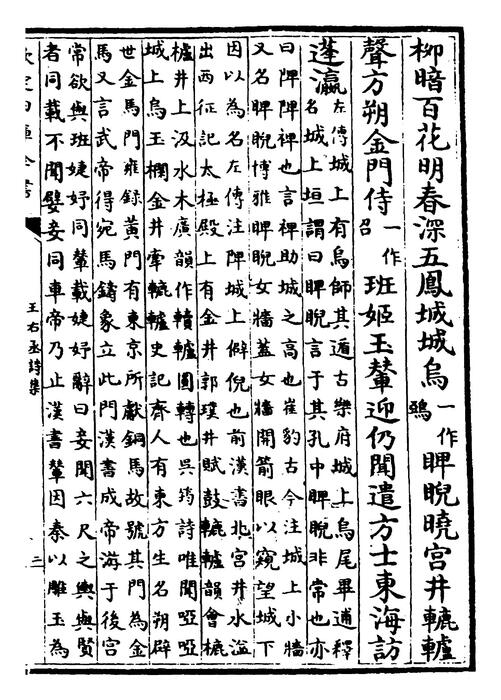 柳暗百花明春深五鳳城城烏一作鵶睥睨曉宮井轆轤
聲方朔金門侍一作召班姬玉輦迎仍聞遣方士東海訪
蓬瀛左傳城上有烏師其遁古樂府城上烏尾畢逋釋
名城上垣謂曰睥睨言于其孔中睥睨非常也亦
曰陴陴裨也言裨助城之高也崔豹古今注城上小牆
又名睥睨博雅睥睨女牆蓋女牆開箭眼以窺望城下
因以為名左傳注陴城上僻倪也前漢書北宮井水溢
出西征記太極殿上有金井郭璞井賦鼓轆轤韻會樚
櫨井上汲水木廣韻作轒轤圓轉也吳筠詩唯聞啞啞
城上烏玉欄金井牽轆轤史記齊人有東方生名朔辟
世金馬門雍録黃門有東京所獻銅馬故號其門為金
馬又言武帝得宛馬鑄象立此門漢書成帝游于後宮
常欲與班婕妤同輦載婕妤辭曰妾聞六尺之輿輿賢
者同載不聞嬖妾同車帝乃止漢書輦因秦以雕玉為
王右丞詩集